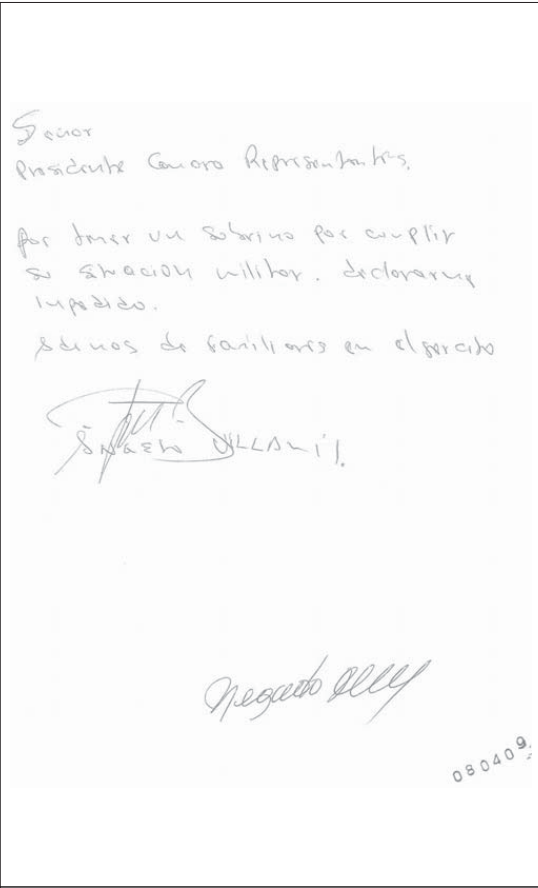 Señor
Presidente Camara Representantes.
Por tener un sobrino por cumplir
su situación militar. declararme
impedido.
de familiares en el ejercito
VILLAMIL
Negado
080409